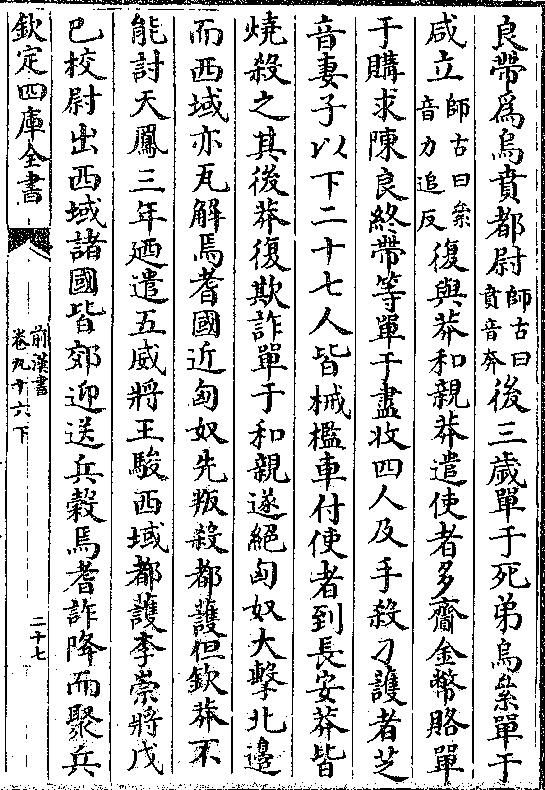 良帶為烏賁都尉師古曰賁音奔後三歲單于死弟烏絫單于
咸立師古曰絫音力追反復與莽和親莽遣使者多齎金幣賂單
于購求陳良終帶等單于盡收四人及手殺刁護者芝
音妻子以下二十七人皆械檻車付使者到長安莽皆
燒殺之其後莽復欺詐單于和親遂絕匈奴大擊北邊
而西域亦瓦解焉耆國近匈奴先叛殺都護但欽莽不
能討天鳳三年迺遣五威將王駿西域都護李崇將戊
巳校尉出西域諸國皆郊迎送兵穀焉耆詐降而聚兵
欽定四庫全書
前漢書
卷九十六下
二十七